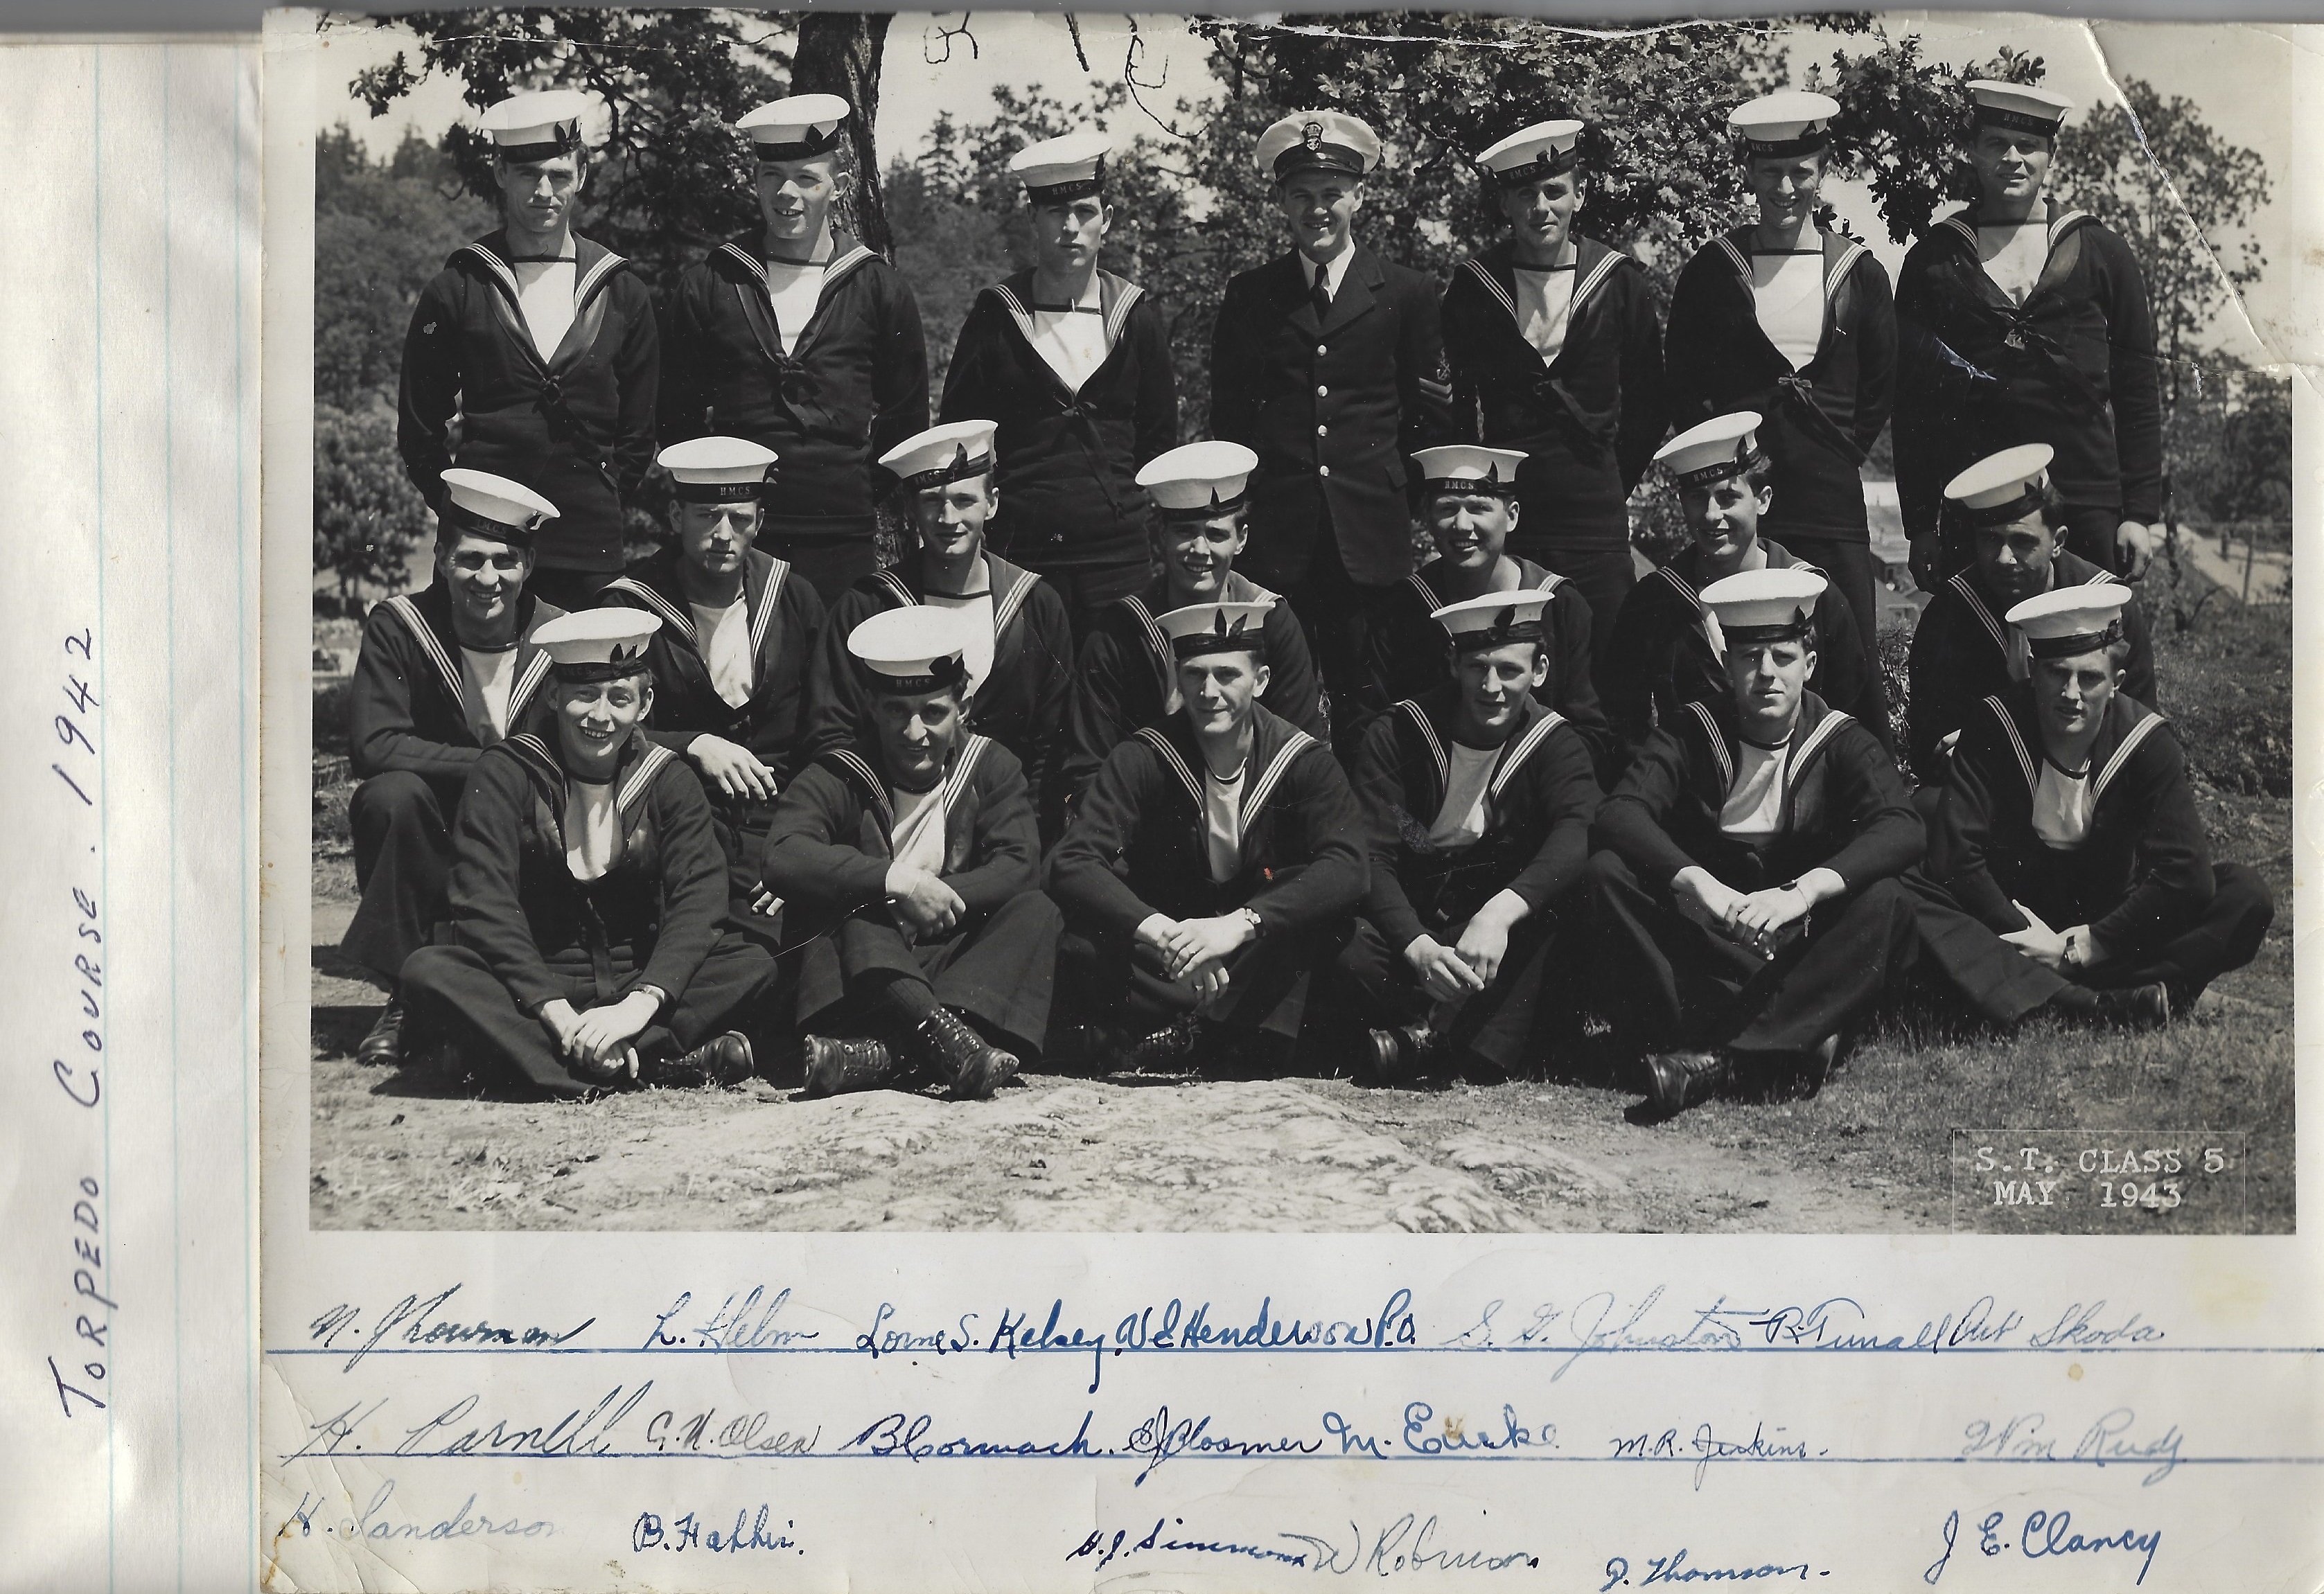 TORPEDO COURSE. 1942
HMCS
S.T. CLASS 5
MAY 1943
L. Helm Lorne S. Kelsey, W E Henderson P.O. S. G. Johnston R. Tunall Art Skoda
H. Parnell G. N. Olsen B Cormack. M. R. Jenkins. Wm Rudy
H. Sanderson H. J. Simmons W Robinson D. Thomson. J E. Clancy